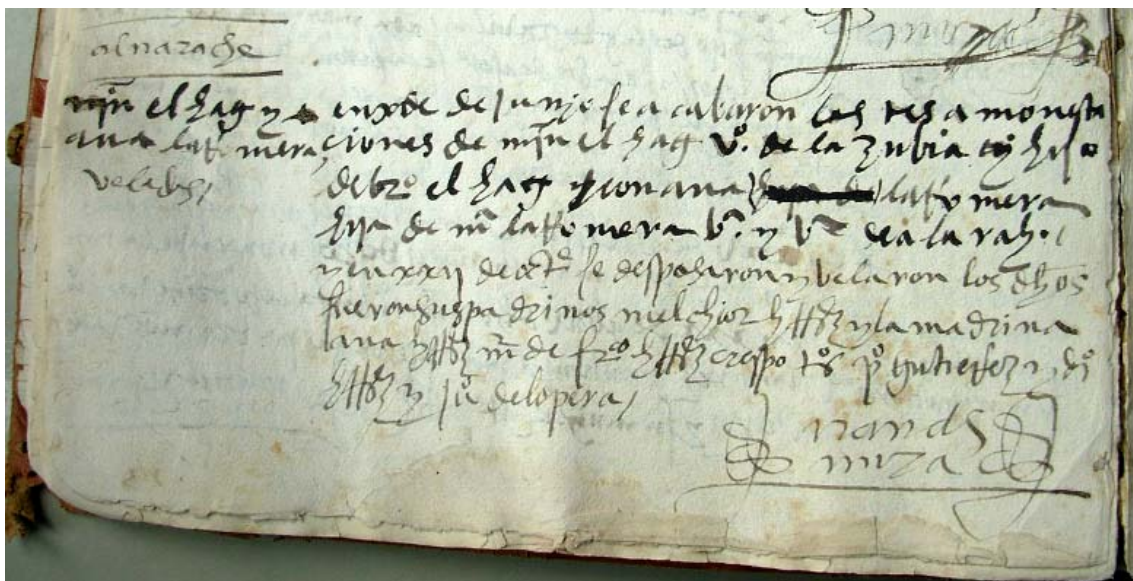 alnarache
mjn el hag y
ana la Romera
velados
en xbe de junjo se acabaron las tres amonesta
ciones de mjn el hag vº. de la zubia y hijo
de brº el hag y con ana la Romera
hija de mn la Romera vª. y vª de alarah.
y en xxij de octe se desposaron y velaron los dhos
fueron sus padrinos melchior hrrz y la madrina
ana hrrz m de frco hrrz crespo tºs pº gutierrez y dº
hrrz y juº de lopera